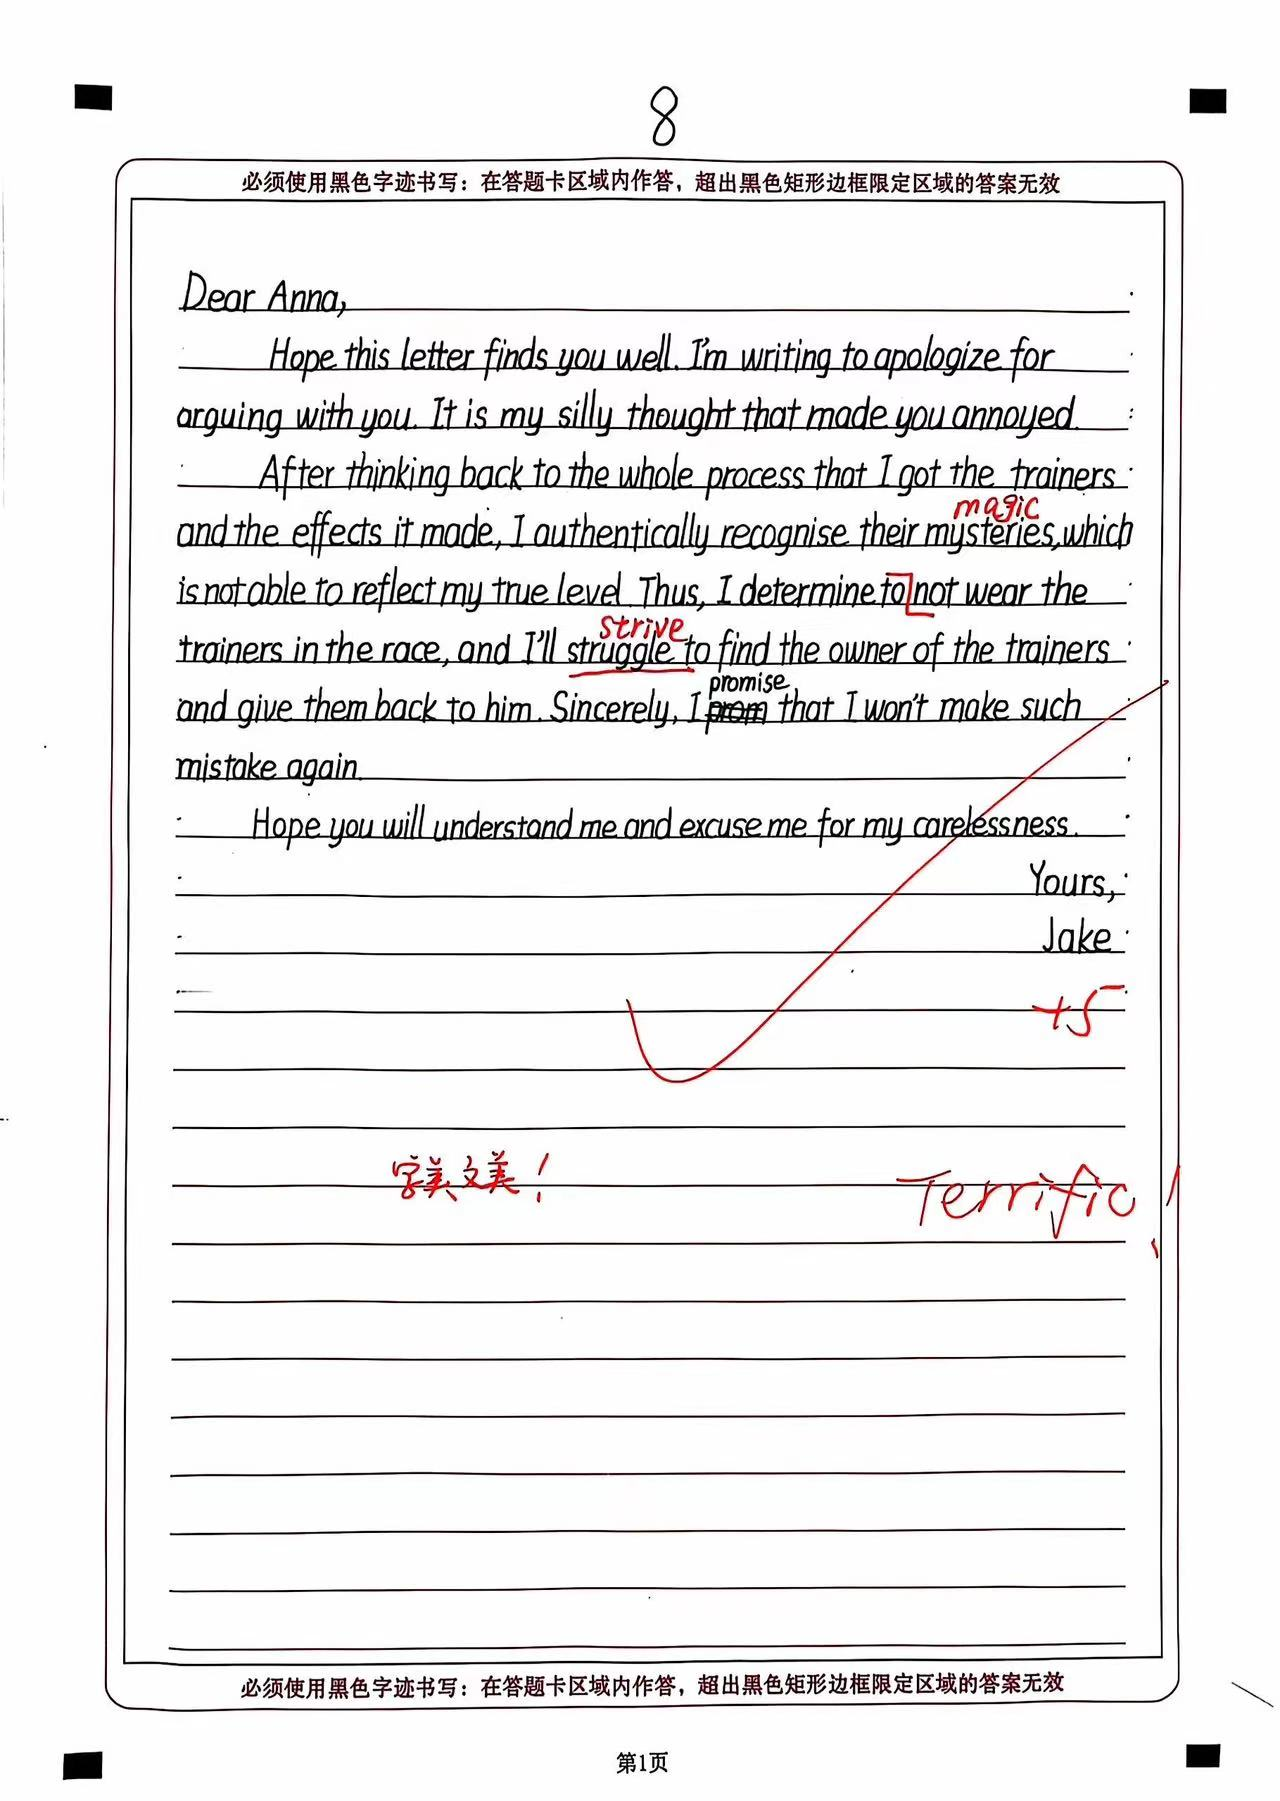 8
必须使用黑色字迹书写：在答题卡区域内作答，超出黑色矩形边框限定区域的答案无效
Dear Anna,
Hope this letter finds you well. I'm writing to apologize for
arguing with you. It is my silly thought that made you annoyed.
After thinking back to the whole process that I got the trainers
magic
and the effects it made, I authentically recognise their mysteries, which
is not able to reflect my true level. Thus, I determine to not wear the
strive
trainers in the race, and I'll struggle to find the owner of the trainers
promise
and give them back to him. Sincerely, I prom that I won't make such
mistake again.
Hope you will understand me and excuse me for my carelessness.
Yours,
Jake
+5
字美文美！
Terrific!
必须使用黑色字迹书写：在答题卡区域内作答，超出黑色矩形边框限定区域的答案无效
第1页